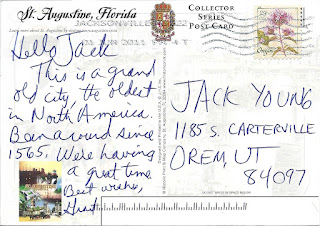 St. Augustine, Florida
COLLECTOR
SERIES
POST CARD
JACKSONVILLE
JUN 2011 PM 4 T
Hello Jack
This is a grand
old city, the oldest
in North America.
Been around since
1565. We're having
a great time
Best wishes,
JACK YOUNG
1185 S. CARTERVILLE
OREM UT
84097